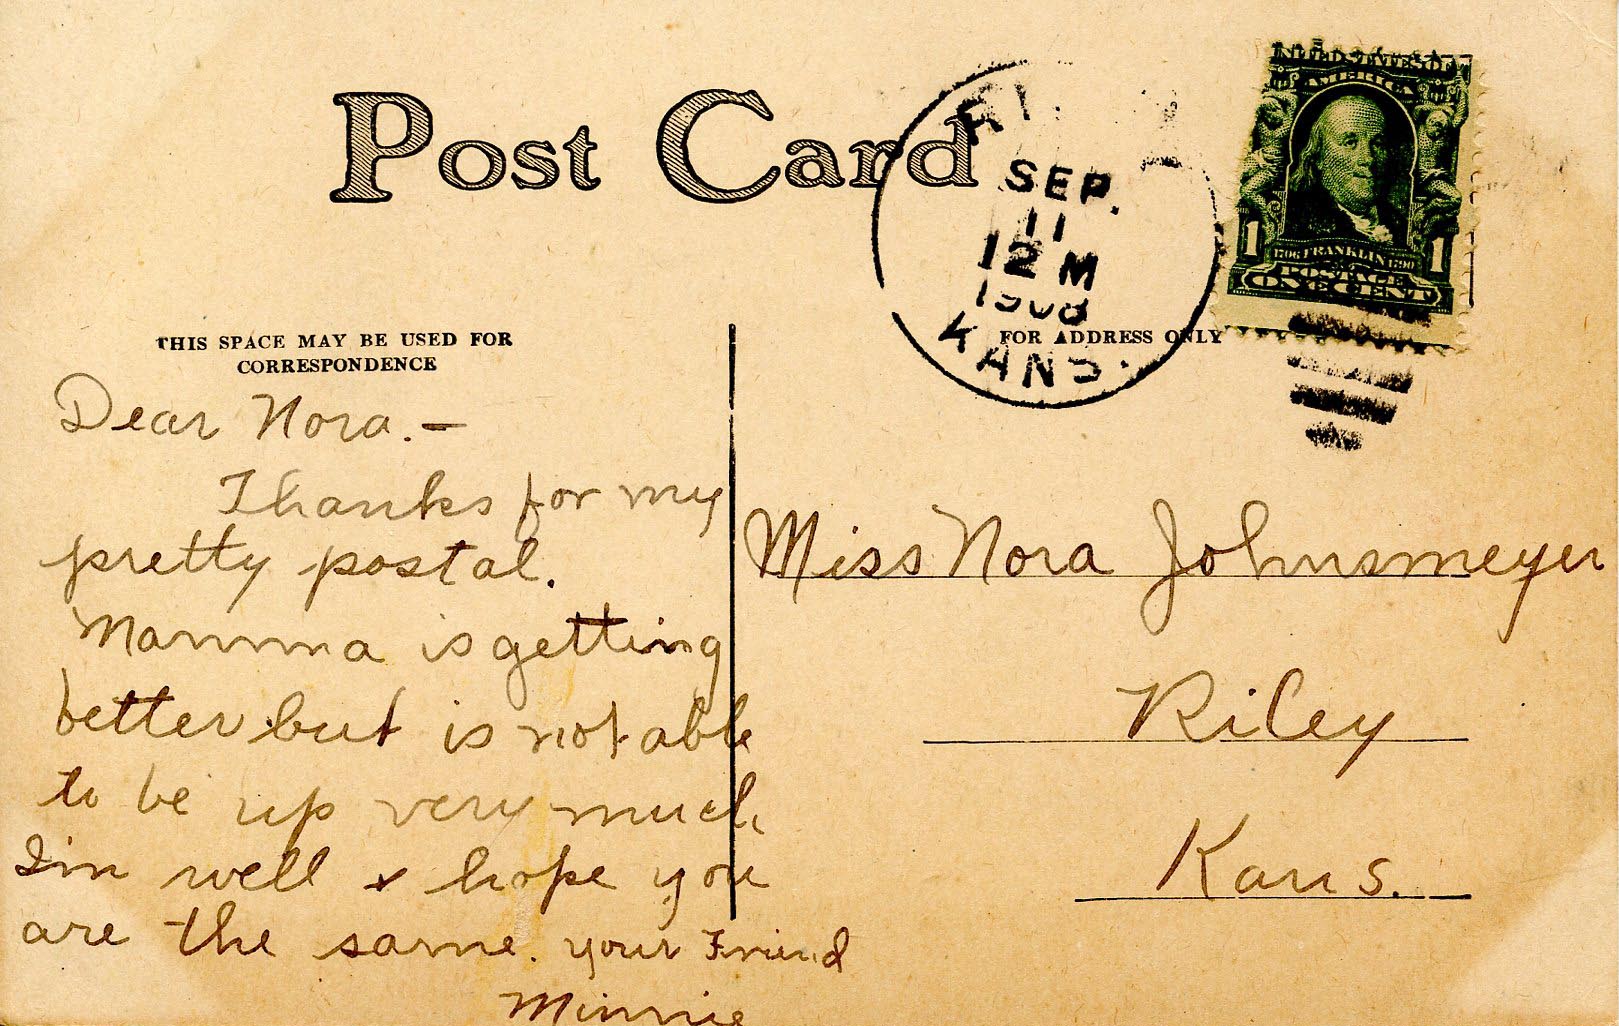 Post Card
SEP.
11
12 M
1908
KANS.
UNITED STATES OF
AMERICA
1 1
1706 FRANKLIN 1790
POSTAGE
ONE CENT
THIS SPACE MAY BE USED FOR
CORRESPONDENCE
FOR ADDRESS ONLY
Dear Nora.—
Thanks for my
pretty postal.
Mamma is getting
better but is not able
to be up very much
I'm well & hope you
are the same. your Friend
Minnie
Miss Nora Johnsmeyer
Riley
Kans.